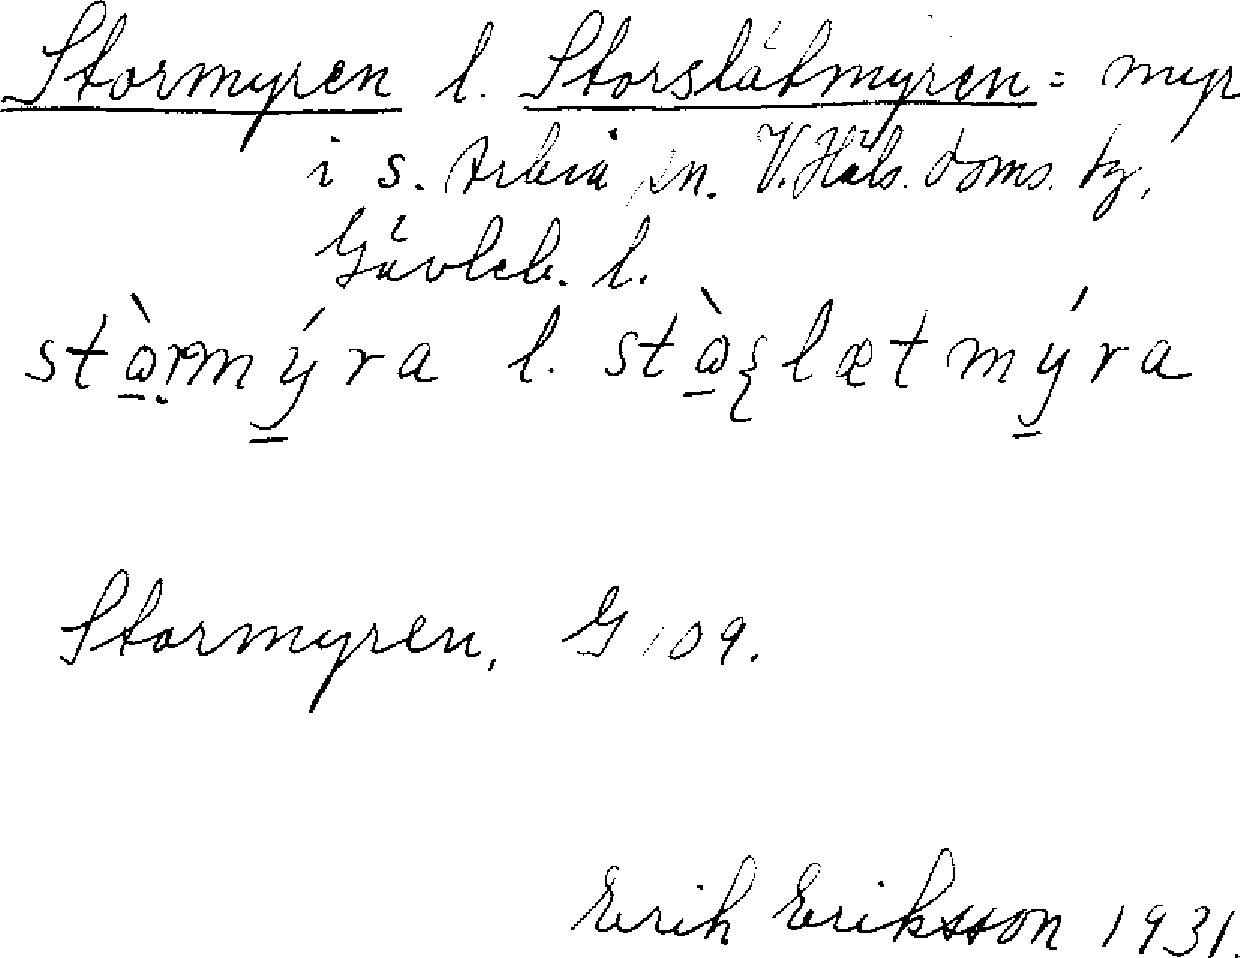 Stormyren l. Storslåtmyren = myr
i s. Arbrå sn. V. Häls. doms. tg,
Gävleb. l.
stɷ̀rmýra l. stɷ̀ʂlætmýra
Stormyren, G 109.
Erik Eriksson 1931.